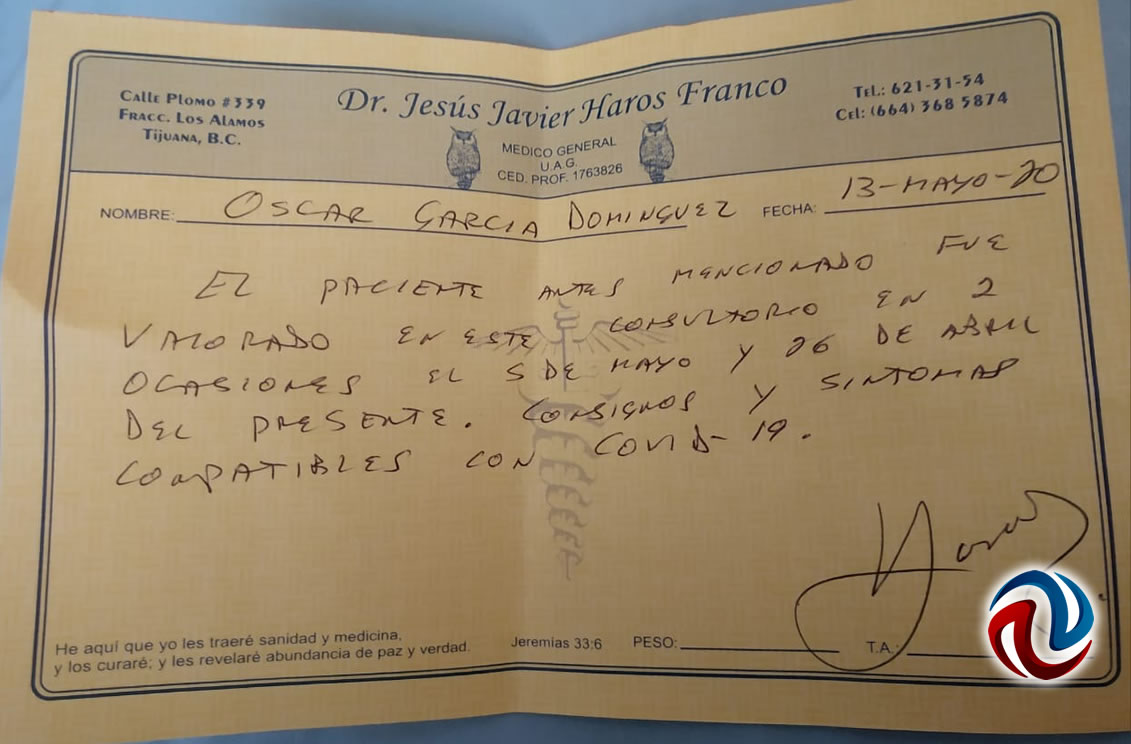 Calle Plomo #339
Fracc. Los Alamos
Tijuana, B.C.
Dr. Jesús Javier Haros Franco
MEDICO GENERAL
U.A.G.
CED. PROF. 1763826
Tel.: 621-31-54
Cel: (664) 368 5874
NOMBRE: OSCAR GARCIA DOMINGUEZ FECHA: 13-MAYO-20
EL PACIENTE ANTES MENCIONADO FUE
VALORADO EN ESTE CONSULTORIO EN 2
OCASIONES EL 5 DE MAYO Y 26 DE ABRIL
DEL PRESENTE. CONSIGNOS Y SINTOMAS
COMPATIBLES CON COVID-19.
Haros
He aquí que yo les traeré sanidad y medicina,
y los curaré; y les revelaré abundancia de paz y verdad.
Jeremías 33:6
PESO:
T.A.: